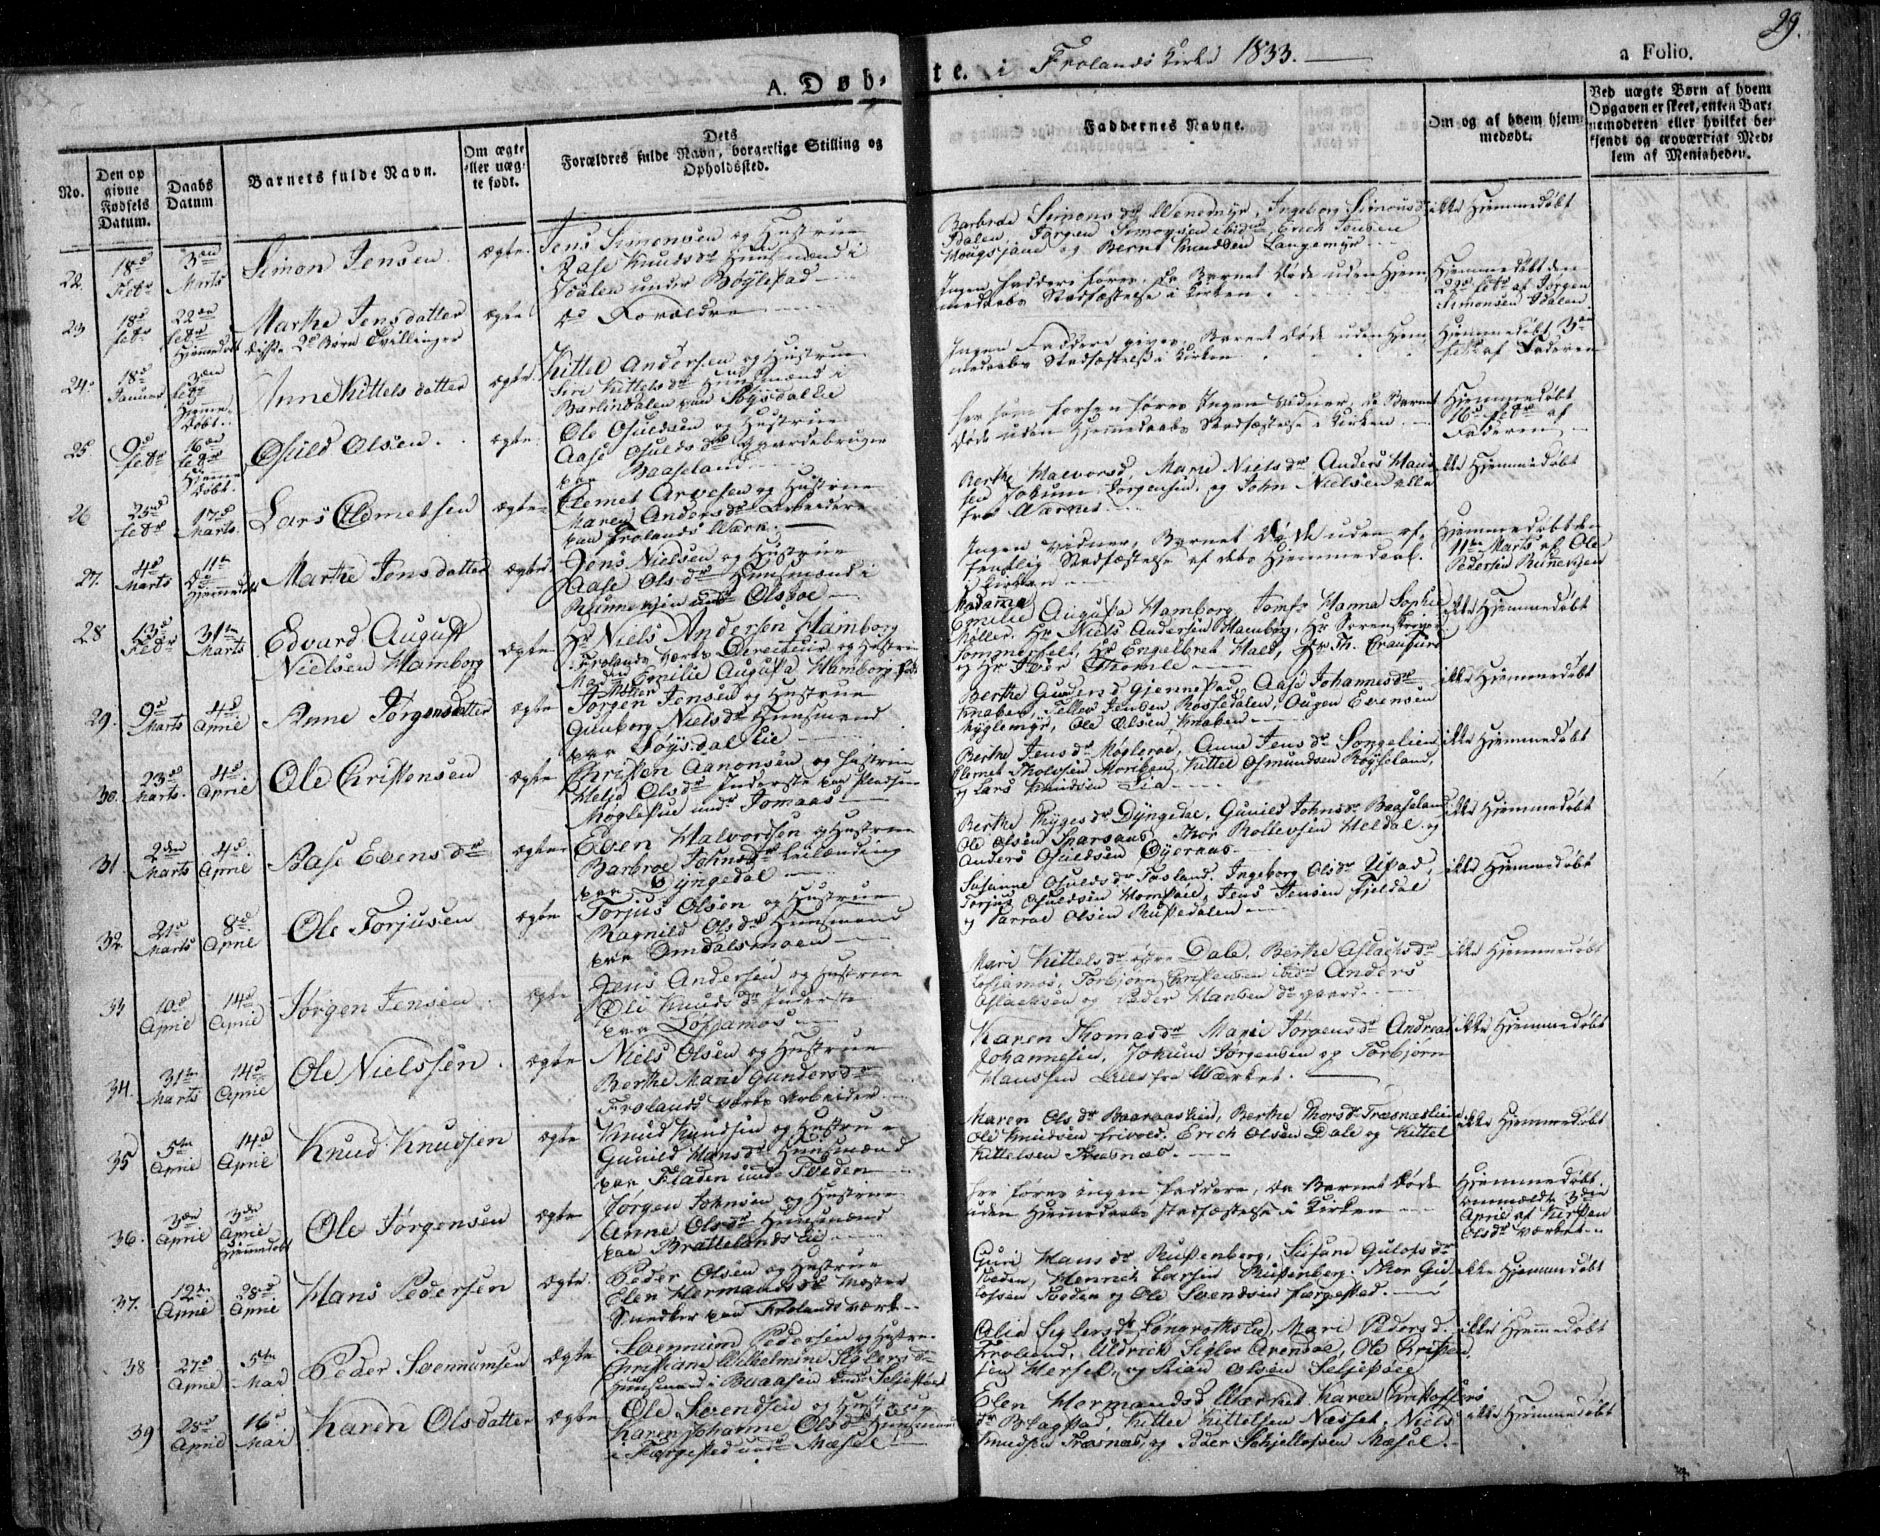 29.
A. Døb-
te. i Frolands Kirke 1833.
a Folio.
No.
Den op
givne
Fødsels
Datum.
Daabs
Datum
Barnets fulde Navn.
Om ægte
eller uæg-
te født.
Dets
Forældres fulde Navn, borgerlige Stilling og
Opholdssted.
Faddernes Navne.
Om og af hvem hjem-
medøbt.
Ved uægte Børn af hvem
Opgaven er skeet, enten Bar-
nemoderen eller hvilket be-
kjendt og troværdigt Med-
lem af Menigheden.
22.
18de
Febr
3die
Marts
Simon Jensen
ægte
Jens Simonsen og Hustrue
Aase Knudsdr Huusmænd i
Dalen under Bøylestad
Barbroe Simonsdr Wenemyr, Ingeborg Simonsdr
Dalen, Jørgen Simonsen ibid Erich Jensen
Mougsjane og Bernt Knudsen Langemyr
ikke Hjemmedøbt
23
18de
Febr
22de
Febr
Hjemmedøbt
Marthe Jensdatter
disse 2de Børn Tvillinger
ægte
do Forældre
Ingen Faddere føres, da Barnet døde uden Hjem-
medaabs Stadfæstelse i Kirken
Hjemmedøbt den
22de Febr af Jørgen
Simonsen Dalen
24.
18de
Januar
3die
Febr
Hjemme-
døbt
Anne Kittelsdatter
ægte
Kittel Andersen og Hustrue
Siri Kittelsdr Huusmænd i
Barlindalen paa Løysdal Lie
Ingen Faddere gives, Barnet døde uden Hjem-
medaabs Stadfæstelse i Kirken
Hjemmedøbt 3die
Febr af Faderen
25
9de
Febr
16de
Febr
Hjemme-
døbt
Osuld Olsen
ægte
Ole Osuldsen og Hustrue
Aase Osuldsdr Gaardebruger
paa Baaseland
Her føres Ingen Vidner, da Barnet
døde uden Hjemmedaabs Stadfæstelse i Kirken
Hjemmedøbt
16de Febr af
Faderen
26
25de
Febr
17de
Marts
Lars Clemetsen
ægte
Clemet Arvesen og Hustrue
Maren Andersdr Arbeider
paa Frolands Værk
Berthe Halvorsd Marie Nielsdr Anders Han-
sen Jokum Jørgensen, og John Nielsen alle
fra Værket
ikke Hjemmedøbt
27.
4de
Marts
11te
do
Hjemmedøbt
Marthe Jensdatter
ægte
Jens Nielsen og Hustrue
Aase Olsdr Huusmænd i
Runnevien under Olsboe
Ingen Vidner, Barnet døde uden of-
fentlig Stadfæstelse af dets Hjemmedaab
i Kirken
Hjemmedøbt den
11te Marts af Ole
Pedersen Runevigen
28
13de
Febr
31te
Marts
Edvard August
Nielsen Hamborg
ægte
Hr Niels Andersen Hamborg
Frolands Værks Directeur og Hustrue
Emilie Augusta Hamborg født
Møller
Madame
Emilie Augusta Hamborg, Jomfr Hanna Sophie
Møller. Hr Niels Andersen Hamborg, Hr Sorenskriver
Sommerfelt, Hr Engelbret Hald, Hr Th. Craufurd
og Hr Iver Thomle
ikke Hjemmedøbt
29.
9de
Marts
4de
April
Anne Jørgensdatter
ægte
Jørgen Jensen og Hustrue
Gunborg Nielsdr Huusmænd
paa Løysdal Lie
Berthe Gundersd Gjennestad, Aase Johannesdr
Knaben, Tellev Jensen Rossedalen, Ougen Evensen
Myglemyr, Ole Olsen Knaben
ikke Hjemmedøbt
30.
23de
Marts
4de
April
Ole Christensen
ægte
Christen Aanonsen og Hustrue
Helje Olsdr Inderste paa Pladsen
Møglestue under Tomaas
Berthe Jensdr Møgleroe, Anne Jensdr Songelien
Clemet Tholvsen Moriken, Kittel Osmundsen Røyseland,
og Lars Knudsen Lia
ikke Hjemmedøbt
31.
2den
Marts
4de
April
Aase Evensdr
ægte
Even Halvordsen og Hustrue
Barbroe Johnsdr Leilænding
paa Dyngedal
Berthe Thygesdr Dyngedal, Gunild Johnsdr Baaseland
Ole Olsen Sparsaas, Thor Rollevsen Heldal og
Anders Osuldsen Oyernæs
ikke Hjemmedøbt
32.
21de
Marts
8de
April
Ole Torjusen
ægte
Torjus Olsen og Hustrue
Ragnild Olsdr Huusmænd
paa Omdalsmoen
Susanne Osuldsdr Tosland, Ingeborg Olsdr Ustad,
Torjus Osuldsen Hompsoie, Jens Jensen Fjeldal
og Tarral Olsen Rustedalen
ikke Hjemmedøbt
33
10de
April
14de
April
Jørgen Jensen
ægte
Jens Andersen og Hustrue
Oli Knudsdr Inderste
paa Løfjamos
Mari Kittelsdr øvre Dale, Berthe Aslachsdr
Løfjamos, Torbjørn Christensen ibid Anders
Aslachsen og Peder Hansen
ikke Hjemmedøbt
34.
31te
Marts
14de
April
Ole Nielssen
ægte
Niels Olsen og Hustrue
Berthe Marie Gundersdr
Frolands Værks Arbeider
Karen Thomasdr Marie Jørgensdr Andreas
Johannesen, Jokum Jørgensen og Torbjørn
Hanssen alle fra Værket.
ikke Hjemmedøbt
35
5te
April
14de
April
Knud Knudsen
ægte
Knud Knudsen og Hustrue
Gunild Hansdr Huusmænd
paa Fladen under Tveden
Karen Olsdr Baaraaslien, Berthe Thorsdr Træsnæslien
Ole Knudsen Frivold. Erich Olsen Dale og Kittel
Kittelsen Træsnæs
ikke Hjemmedøbt
36.
3die
April
3die
April
Hjemmedøbt
Ole Jørgensen
ægte
Jørgen Johnsen og Hustrue
Anne Olsdr Huusmænd
paa Brattelandslie
Her føres ingen Faddere, da Barnet døde
uden Hjemmedaabs Stadfæstelse i Kirken
Hjemmedøbt.
anmeldt 3die
April af Kirsten
Olsdr Værket
37.
12te
April
28de
April
Hans Pedersen
ægte
Peder Olsen og Hustrue
Elen Hermandsdr Mester
Snedker paa Frolands Værk
Guri Hansdr Rustenberg, Susane Gulofsdr
Tveden, Henrich Larsen Rustenberg. Thor Gul-
lofsen Tveden og Ole Svendsen Færgestad.
ikke Hjemmedøbt
38
27de
April
5te
Mai
Peder Svennumsen
ægte
Svennum Pedersen og Hustrue
Christiane Wilhelmine Siglersdr
Huusmænd i Buaasen under Seljestøel
Olia Siglersdr Longrothslie, Mari Pedersd
Froland, Uldrich Sigler Arendal, Ole Kristen-
sen Hersel, og Stian Olsen Seljestøe
ikke Hjemmedøbt
39
25de
April
16de
Mai
Karen Olsdatter
ægte
Ole Svendsen og Hustrue
Karen Johanne Olsdr Huusmænd
i Færgested under Mæsel
Elen Hermandsd Værket. Karen Christoffers-
dr Blagstad, Kittel Kittelsen Næsset, Niels
Knudsen Træsnæs, og Peder Schjellofsen Mæsel.
ikke Hjemmedøbt